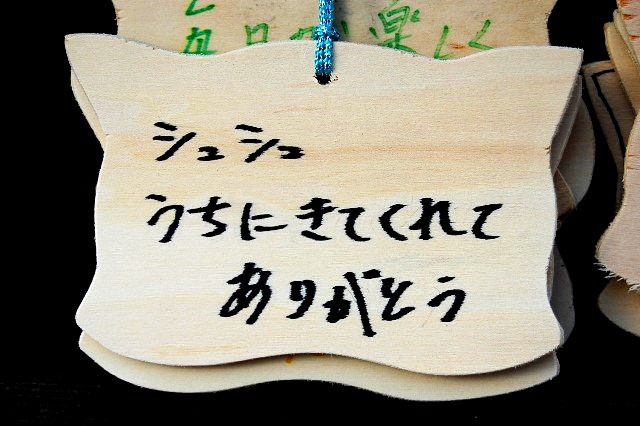 毎日が楽しく
シュシュ
うちにきてくれて
ありがとう